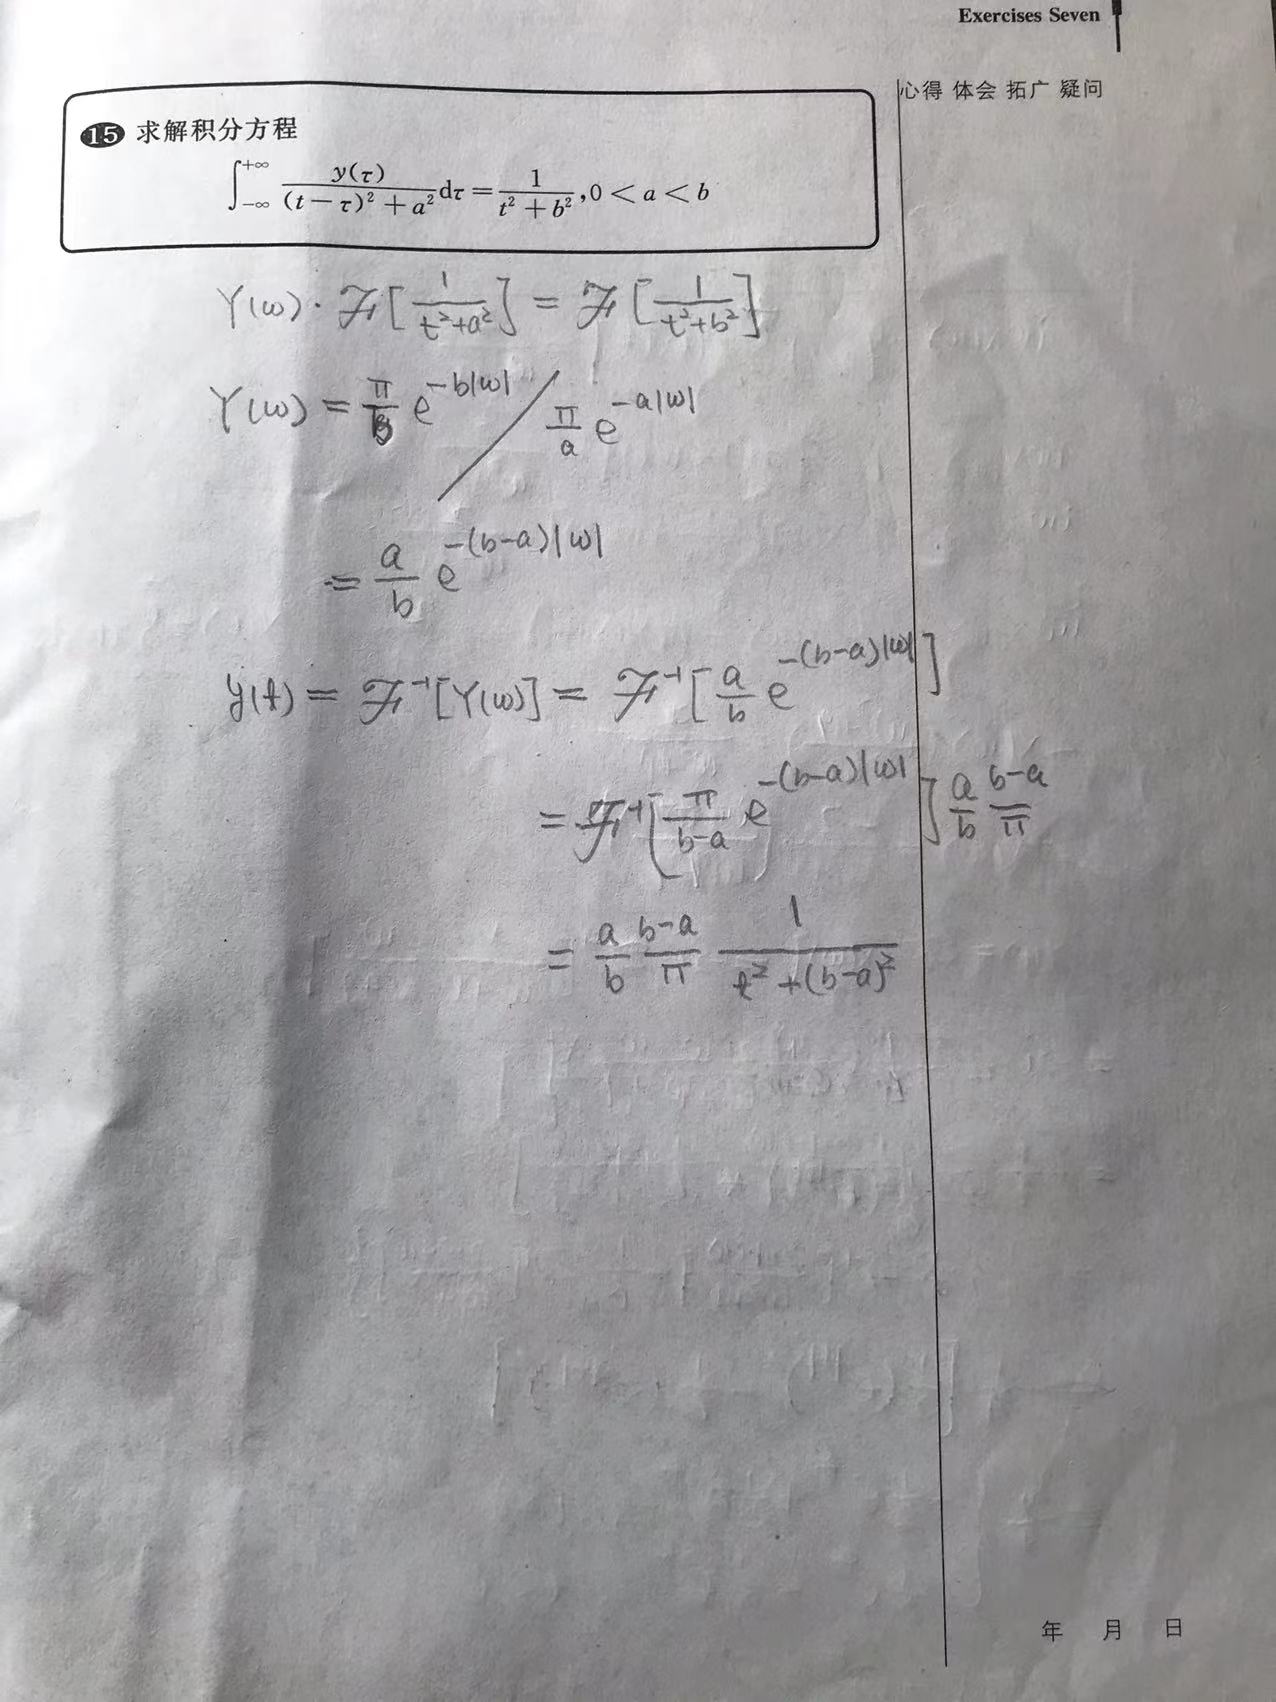 Exercises Seven
心得 体会 拓广 疑问
15 求解积分方程
∫_{-∞}^{+∞} y(τ)/((t-τ)²+a²) dτ = 1/(t²+b²), 0<a<b
Y(ω)·ℱ[1/(t²+a²)] = ℱ[1/(t²+b²)]
Y(ω) = π/b e^{-b|ω|} / π/a e^{-a|ω|}
= a/b e^{-(b-a)|ω|}
y(t) = ℱ⁻¹[Y(ω)] = ℱ⁻¹[a/b e^{-(b-a)|ω|}]
= ℱ⁻¹[π/(b-a) e^{-(b-a)|ω|}] a/b (b-a)/π
= a/b (b-a)/π 1/(t²+(b-a)²)
年 月 日